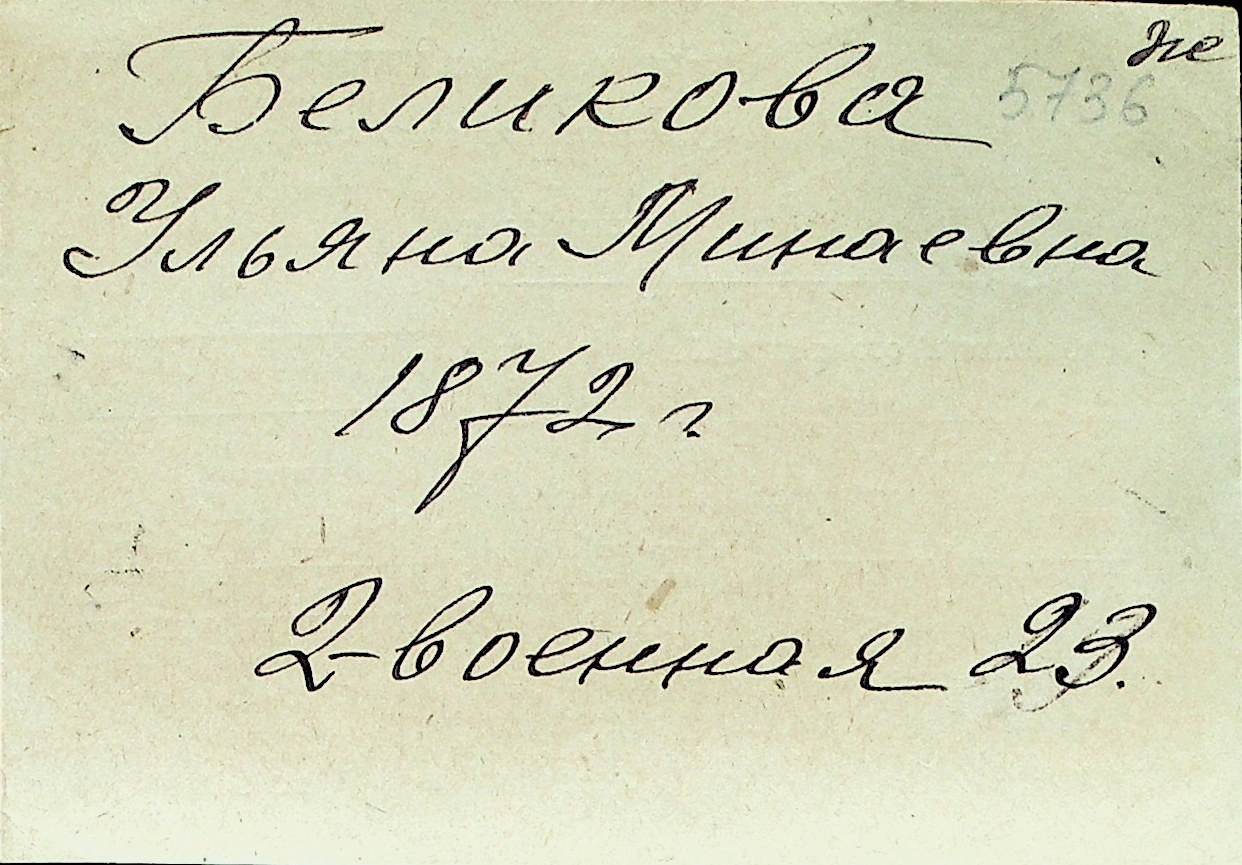 же
Беликова 5736
Ульяна Минаевна
1872 г.
2-военная 23.